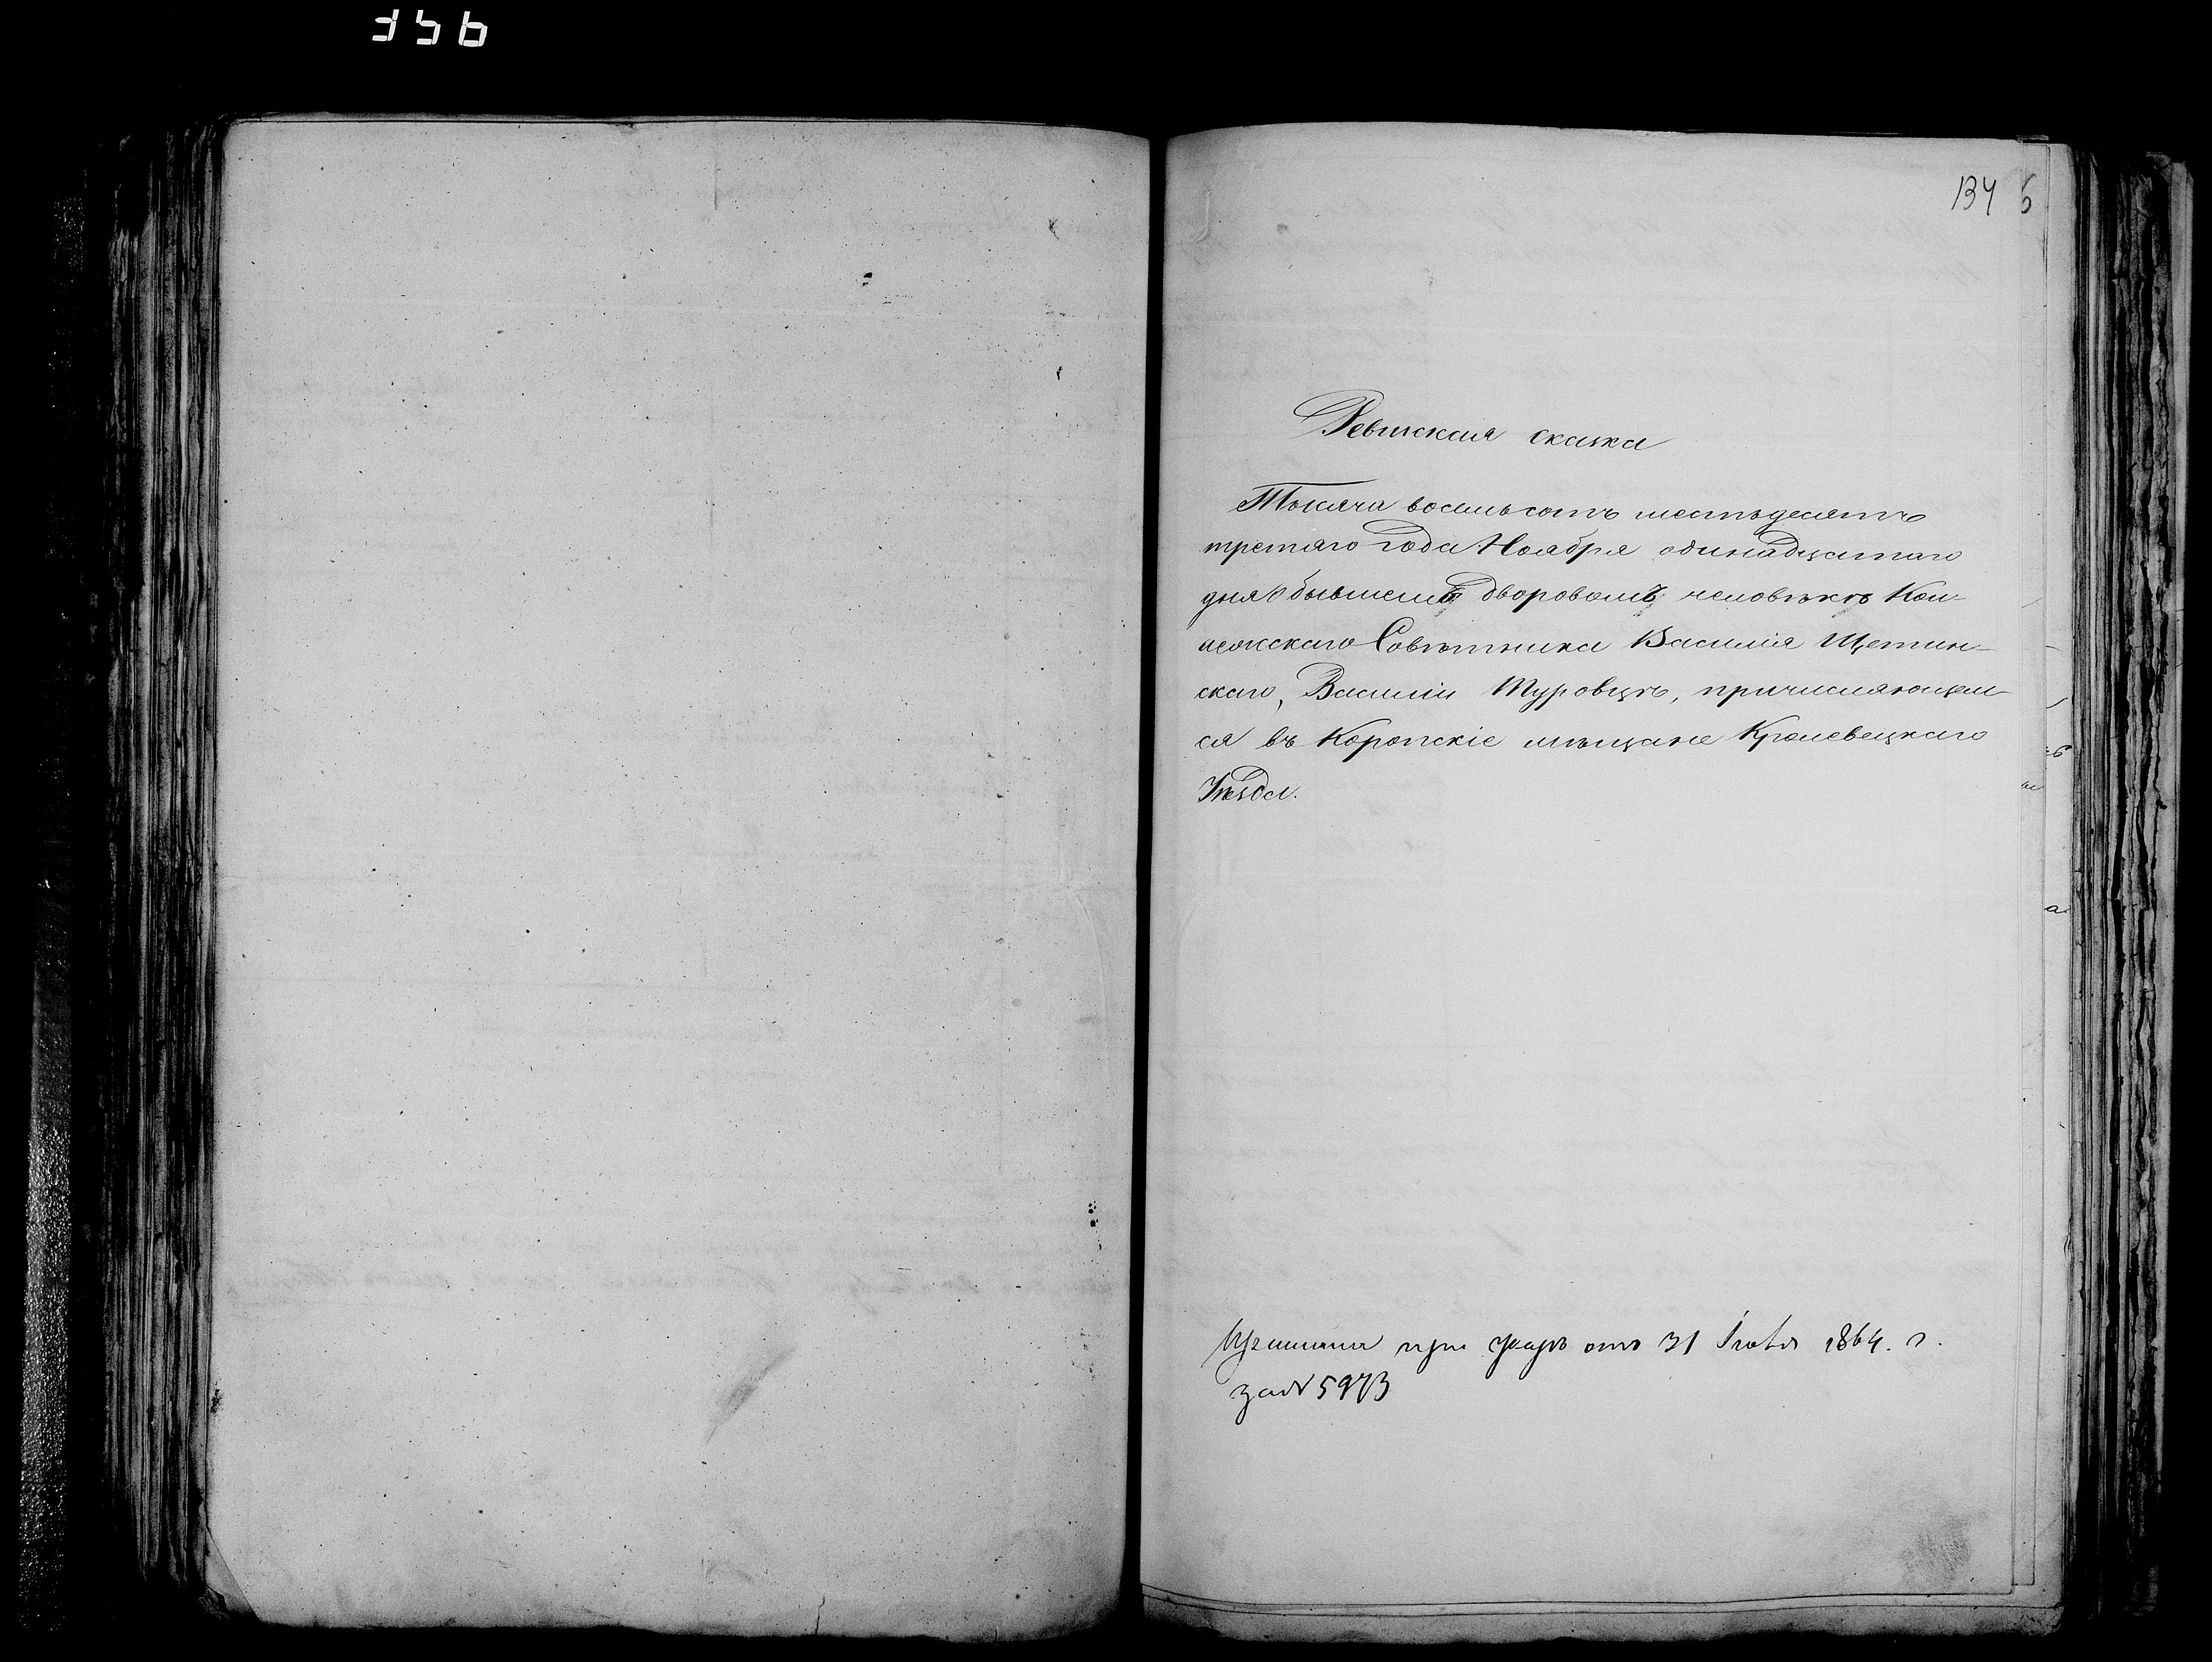 356
134 б
Ревижская сказка
Тысяча восемьсотъ шестьдесятъ
третяго года Ноября одинадцатаго
дня О бывшемъ дворовомъ человѣкѣ Кол-
лежскаго Совѣтника Василія Щетин-
скаго, Василіи Туровцѣ, причисляющем-
ся въ Коропскіе мѣщане Кролевецкаго
Уѣзда.
при указѣ отъ 31 1864. г.
за № 5973